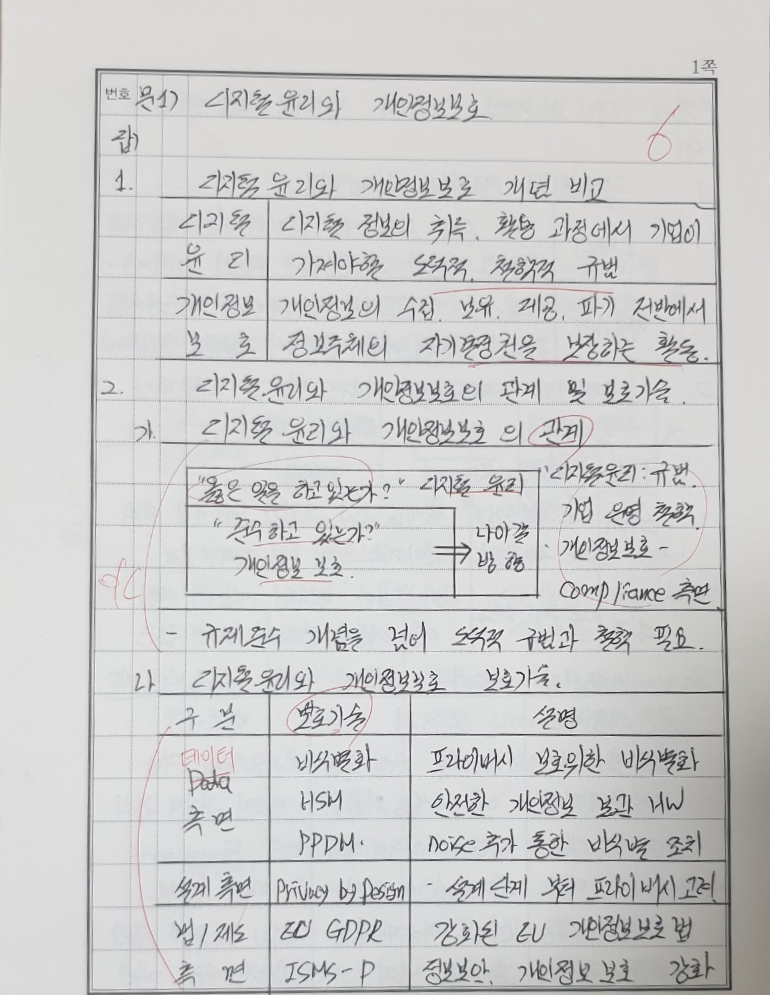 1쪽
번호 문1) 디지털 윤리와 개인정보보호
6
답)
1. 디지털 윤리와 개인정보보호 개념 비교
디지털 디지털 정보의 취득, 활용 과정에서 기업이
윤리 가져야할 도덕적, 철학적 규범
개인정보 개인정보의 수집, 보유, 제공, 파기 전반에서
보호 정보주체의 자기결정권을 보장하는 활동.
2. 디지털 윤리와 개인정보보호의 관계 및 보호기술.
가. 디지털 윤리와 개인정보보호의 관계
"옳은 일을 하고 있는가?" 디지털 윤리
"준수하고 있는가?"
개인정보 보호.
⇒ 나아갈
방향
· 디지털윤리 : 규범,
기업 운영 철학.
· 개인정보보호 -
compliance 측면
- 규제준수 개념을 넘어 도덕적 규범과 철학 필요.
나. 디지털 윤리와 개인정보보호 보호기술.
구분 보호기술 설명
데이터
Data
측면
비식별화 프라이버시 보호위한 비식별화
HSM 안전한 개인정보 보관 HW
PPDM. noise 추가 통한 비식별 조치
설계 측면 Privacy by Design - 설계 단계 부터 프라이버시 고려.
법/제도 EU GDPR 강화된 EU 개인정보보호 법
측면 ISMS-P 정보보안, 개인정보 보호 강화